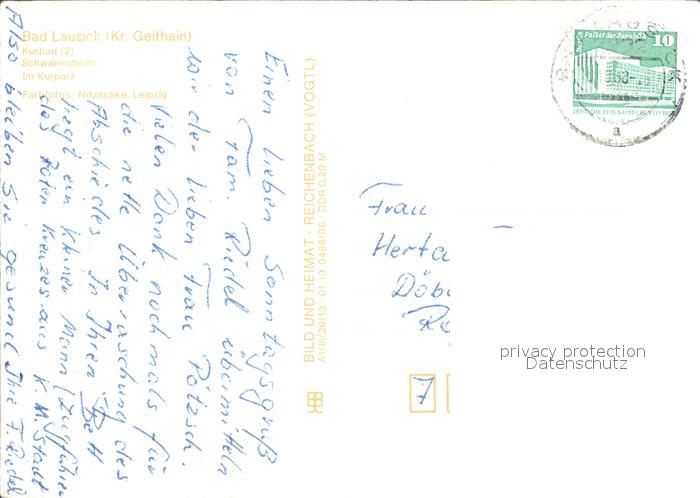 Bad Lausick (Kr. Geithain)
Kurbad (2)
Schwanenteich
Im Kurpark
Farbfotos: Nitzschke, Leipzig
Einen lieben Sonntagsgruß
von Fam. Riedel übermitteln
wir der lieben Frau Pötzsch.
Vielen Dank nochmals für
die nette Überraschung des
Abschiedes. In Ihren Bett
liegt ein kleiner Mann (Zugführer
des Roten Kreuzes aus K. M. Stadt
Also bleiben Sie gesund Ihre F. Riedel
BILD UND HEIMAT · REICHENBACH (VOGTL)
A1/III/26/13 · 01 13 0498/06 · DDR 0,20 M
Berlin Palast der Republik 10
DEUTSCHE DEMOKRATISCHE REPUBLIK
a
Frau
Herta
Döb
7
privacy protection
Datenschutz